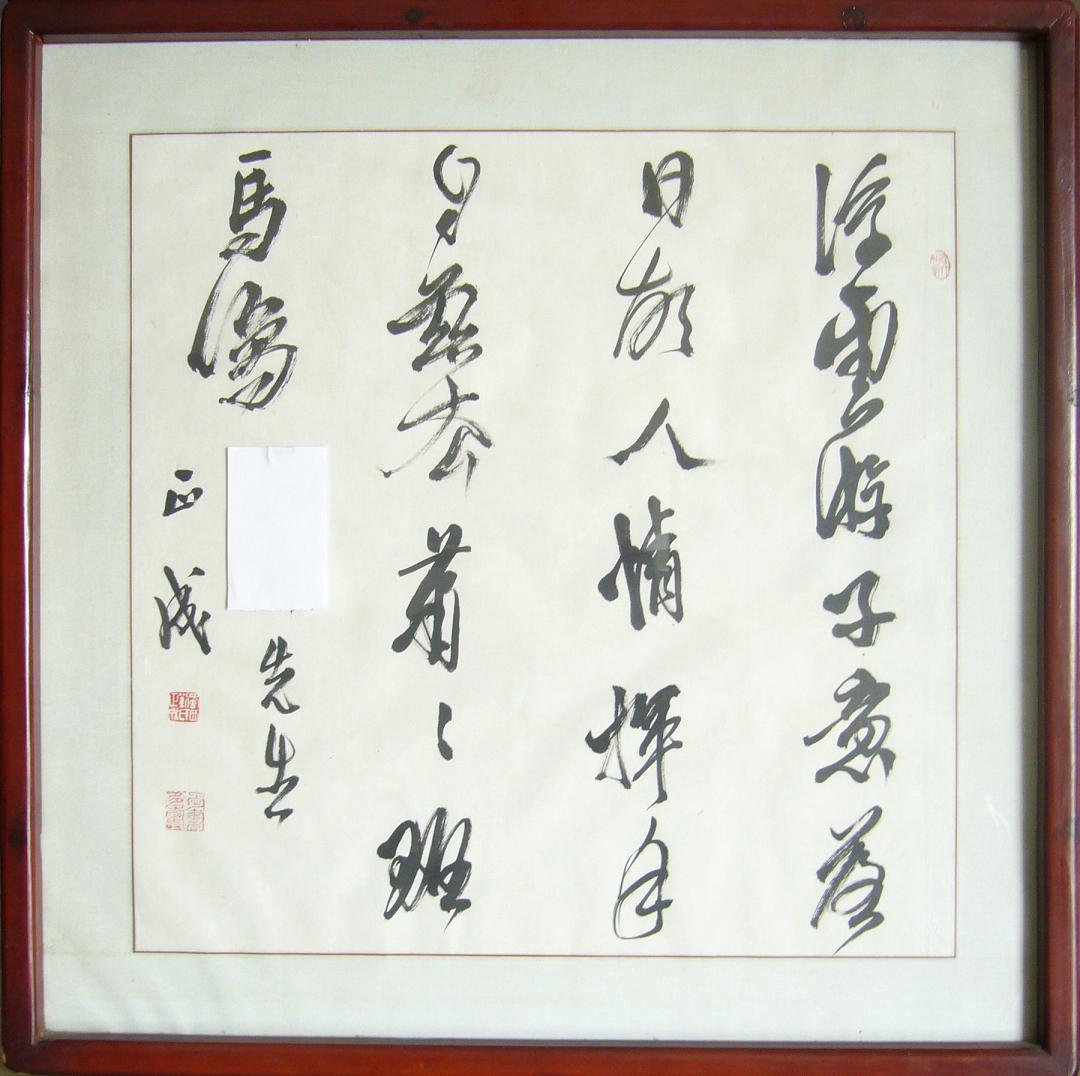 浮雲游子意落
日故人情揮手
自茲去蕭〻班
馬鳴
先生
正成